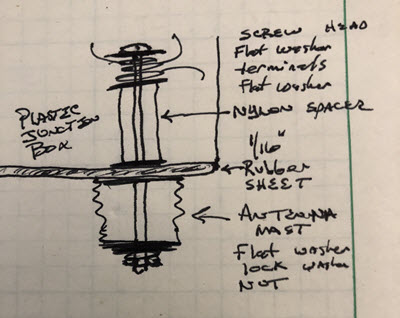 SCREW HEAD
Flat washer
terminals
Flat washer
NYLON SPACER
PLASTIC
JUNCTION
BOX
1/16"
Rubber
SHEET
ANTENNA
MAST
Flat washer
lock washer
NUT